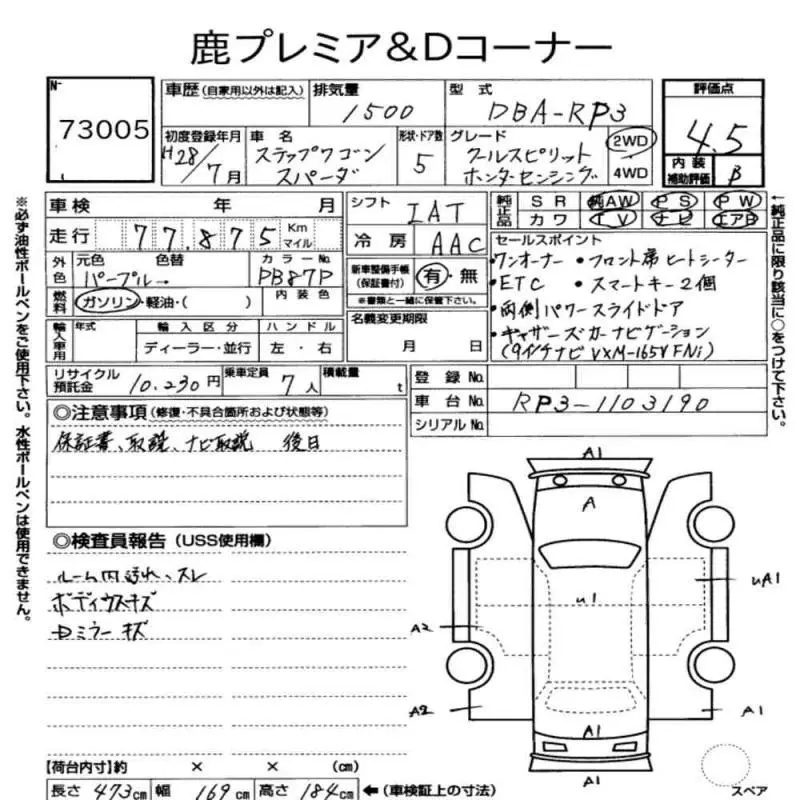 鹿プレミア&Dコーナー
№
73005
車歴(自家用以外は記入)
排気量
1500
型式
DBA-RP3
評価点
4.5
初度登録年月
H28/7月
車名
ステップワゴン
スパーダ
形状・ドア数
5
グレード
クールスピリット
ホンダセンシング
2WD
4WD
内装
補助評価
B
車検 年 月
シフト
IAT
純正品
SR 純AW PS PW
カワ TV ナビ エアB
走行 77,875 Km
マイル
冷房
AAC
セールスポイント
・ワンオーナー ・フロント席ヒートシーター
・ETC ・スマートキー2個
・両側パワースライドドア
・ギャザーズカーナビゲーション
(9インチナビ VXM-165VFNi)
外色
元色 色替 カラーNo.
パープル→ PB87P
新車整備手帳
(保証書付)
有・無
※書類と一緒に保管下さい。
燃料
ガソリン・軽油・( )
内装色
名義変更期限
月 日
輸入車用
年式
輸入区分
ハンドル
ディーラー・並行
左・右
リサイクル
預託金
10,230円
乗車定員
7人
積載量
t
登録No.
車台No.
RP3-1103190
シリアルNo.
◎注意事項(修復・不具合箇所および状態等)
保証書、取説、ナビ取説 後日
◎検査員報告(USS使用欄)
ルーム内汚れ、スレ
ボディウスキズ
Dミラーキズ
A1
A
U1
UA1
A2
A2
A1
A1
A1
スペア
【荷台内寸】約 × × (cm)
長さ 473cm 幅 169cm 高さ 184cm ←(車検証上の寸法)
※必ず油性ボールペンをご使用下さい。水性ボールペンは使用できません。
←純正品に限り該当に○をつけて下さい。